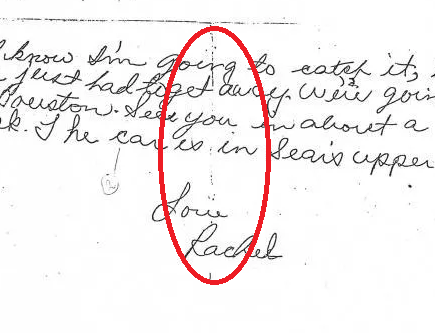 I know I'm going to catch it,
just had to get away. We're goin
Houston. See you in about a
ek. The car is in Sear's upper
Love
Rachel